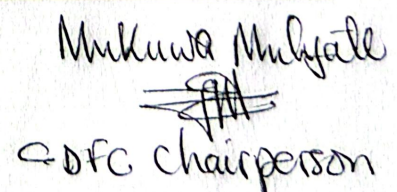 Mukuwa Mulyata
CDFC Chairperson